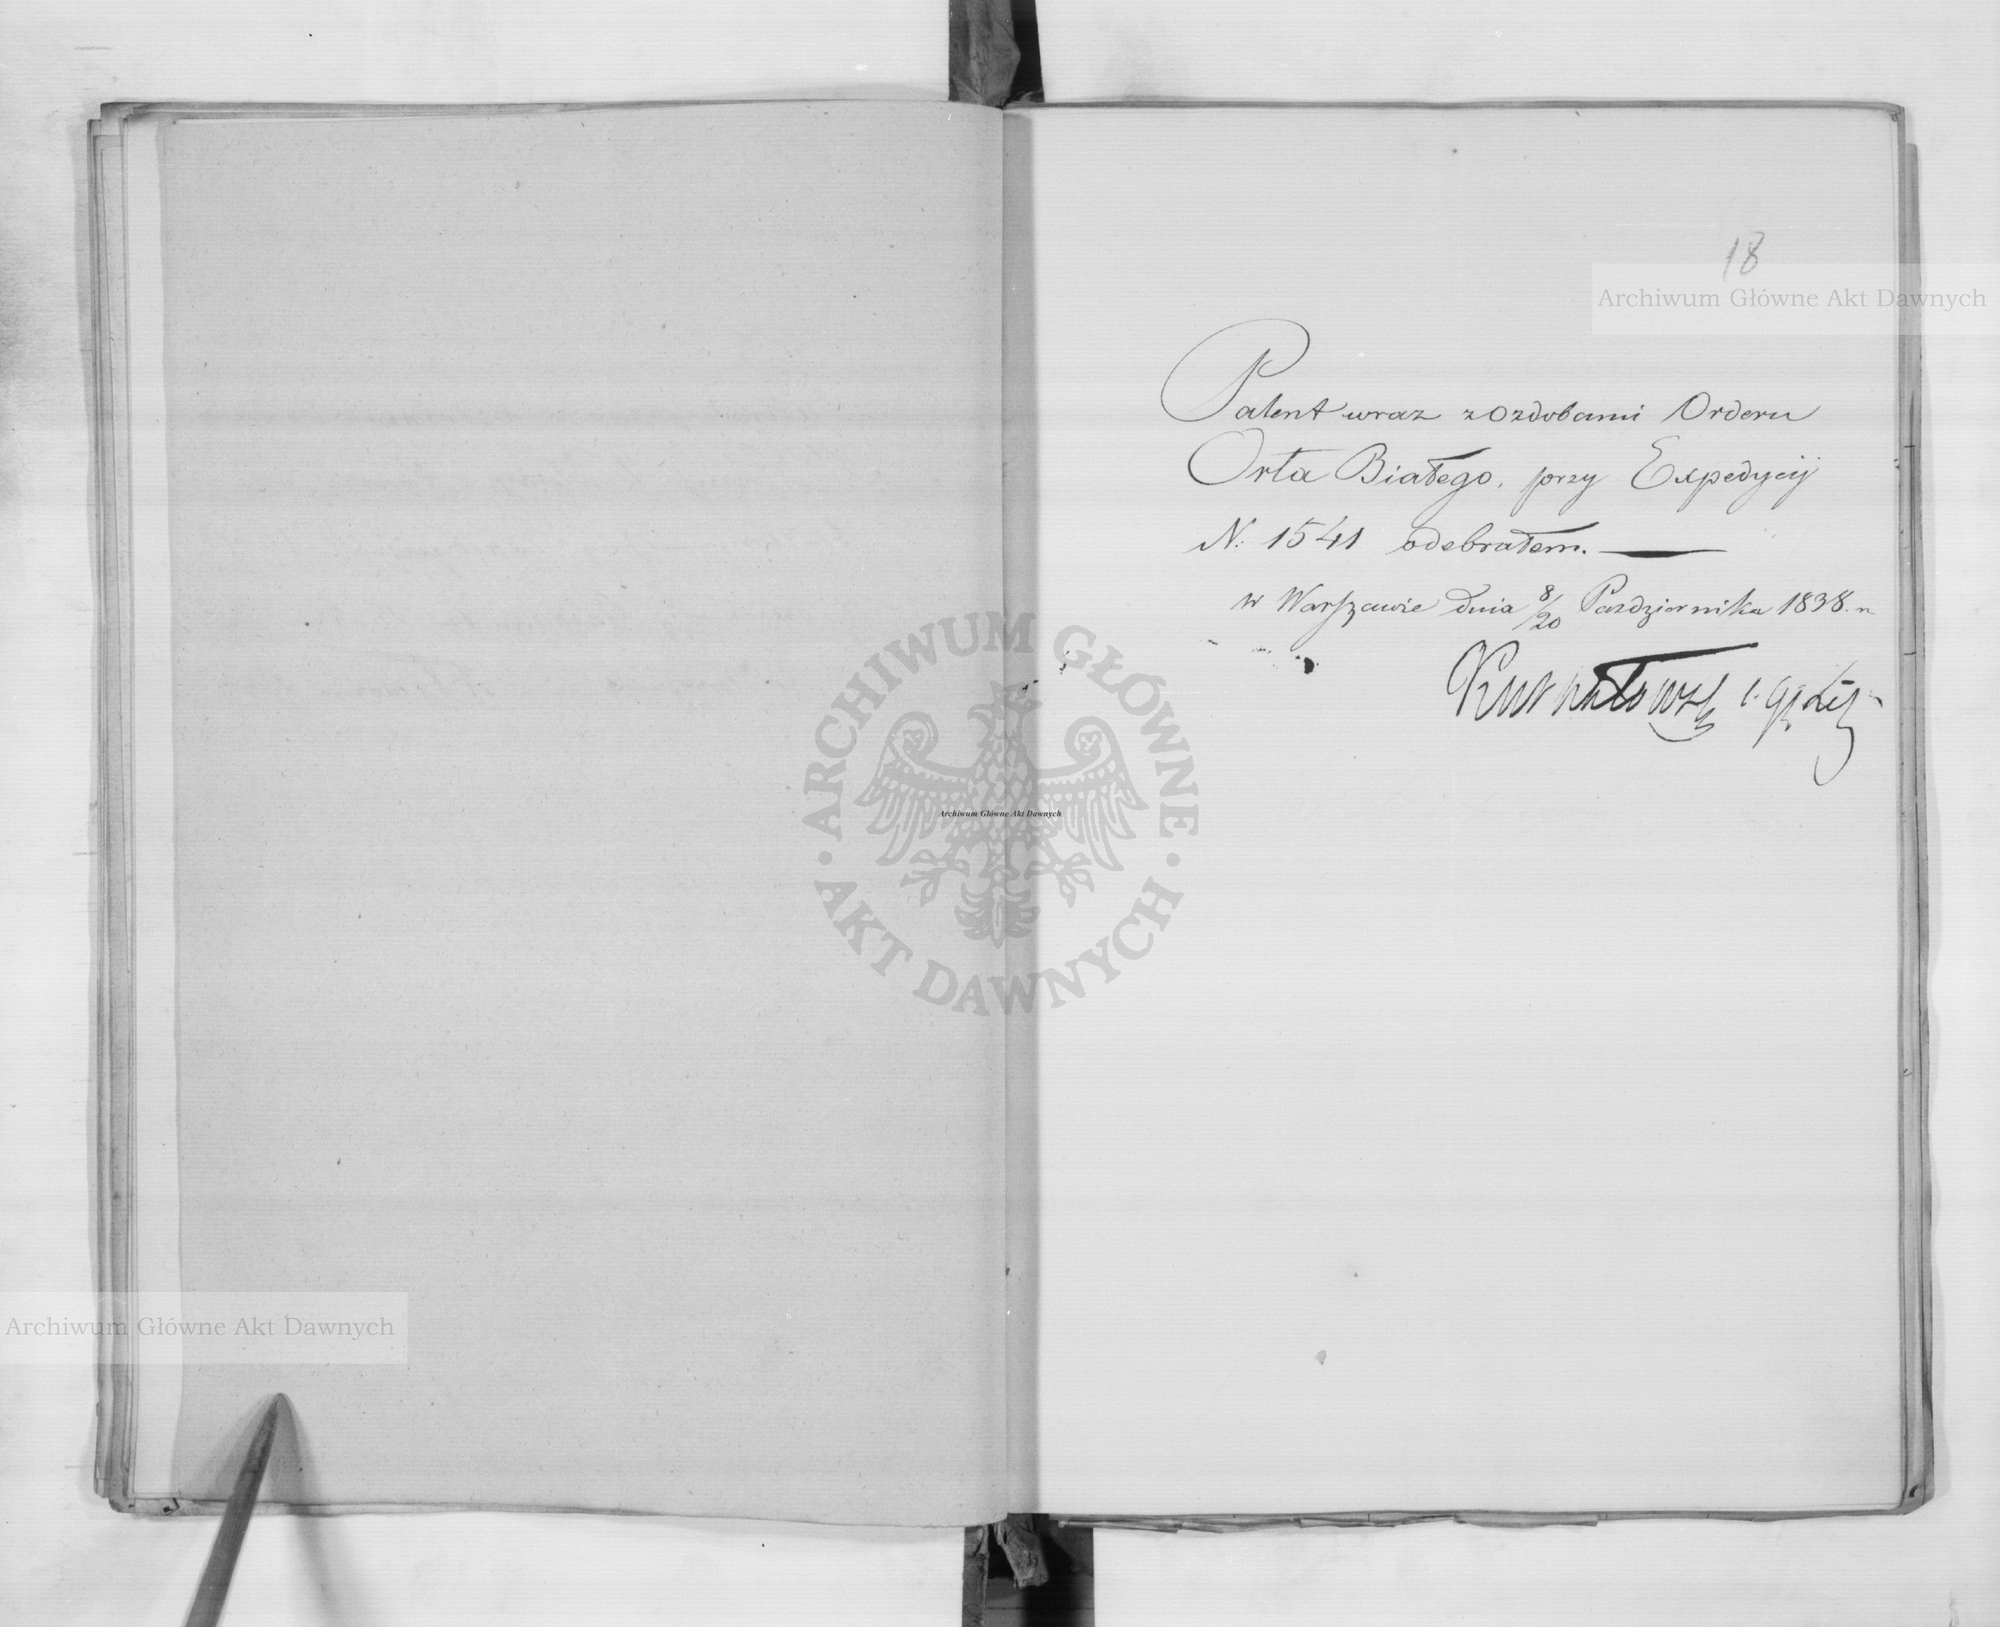 18
Archiwum Główne Akt Dawnych
Patent wraz z Ozdobami Orderu
Orła Białego, przy Expedycyi
N: 1541 odebrałem.
w Warszawie dnia 8/20 Pazdziernika 1838. r
ARCHIWUM GŁÓWNE
AKT DAWNYCH
Archiwum Główne Akt Dawnych
Archiwum Główne Akt Dawnych